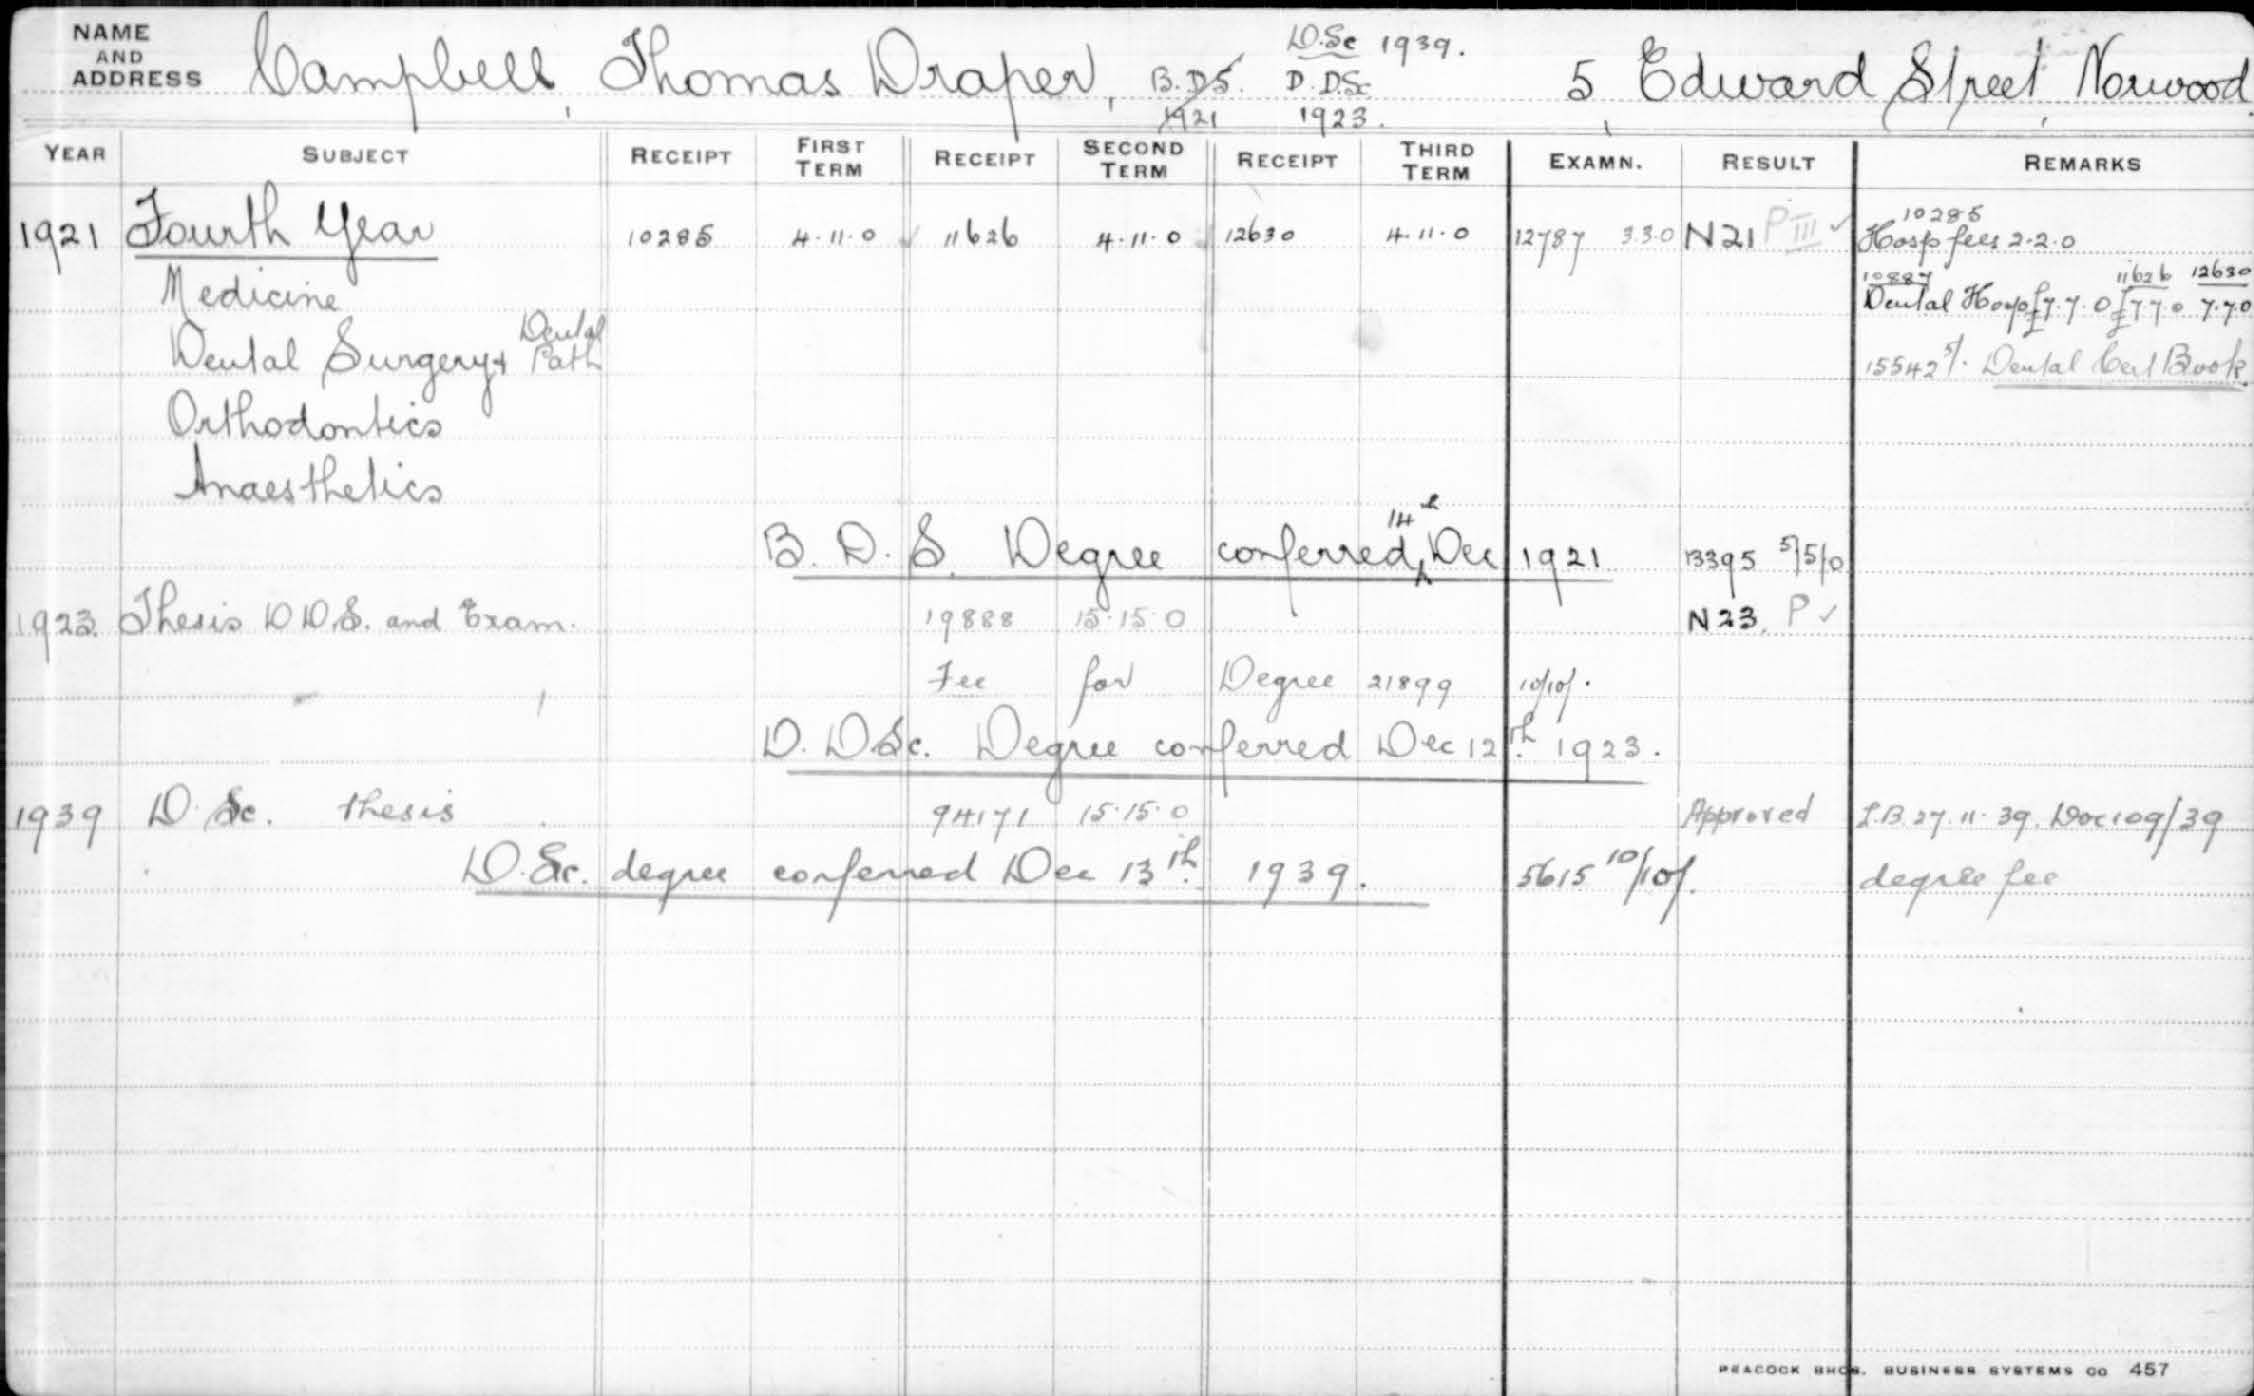 NAME AND ADDRESS Campbell, Thomas Draper, B.D.S. 1921 D.Sc 1939. D.DSc. 1923. 5, Edward Street, Norwood
YEAR SUBJECT RECEIPT FIRST TERM RECEIPT SECOND TERM RECEIPT THIRD TERM EXAMN. RESULT REMARKS
1921 Fourth Year 10285 4.11.0 11626 4.11.0 12630 4.11.0 12787 3.3.0 N21 P III ✓ 10285 Hosp fees 2.2.0
Medicine 10887 11626 12630
Dental Hosp £7.7.0 £7 7 0 7.7.0
Dental Surgery & Dental Path 15542 5/. Dental Cert Book
Orthodontics
Anaesthetics
B. D. S. Degree conferred 14th Dec 1921 13395 5/5/0
1923 Thesis D D.S. and Exam. 19888 15.15.0 N23. P ✓
Fee for Degree 21899 10/10/.
D. DSc. Degree conferred Dec 12th 1923.
1939 D. Sc. thesis 94171 15.15.0 Approved L.B. 27.11.39. Doc 109/39
D.Sc. degree conferred Dec 13th 1939. 5615 10/10/. degree fee
PEACOCK BROS. BUSINESS SYSTEMS CO 457